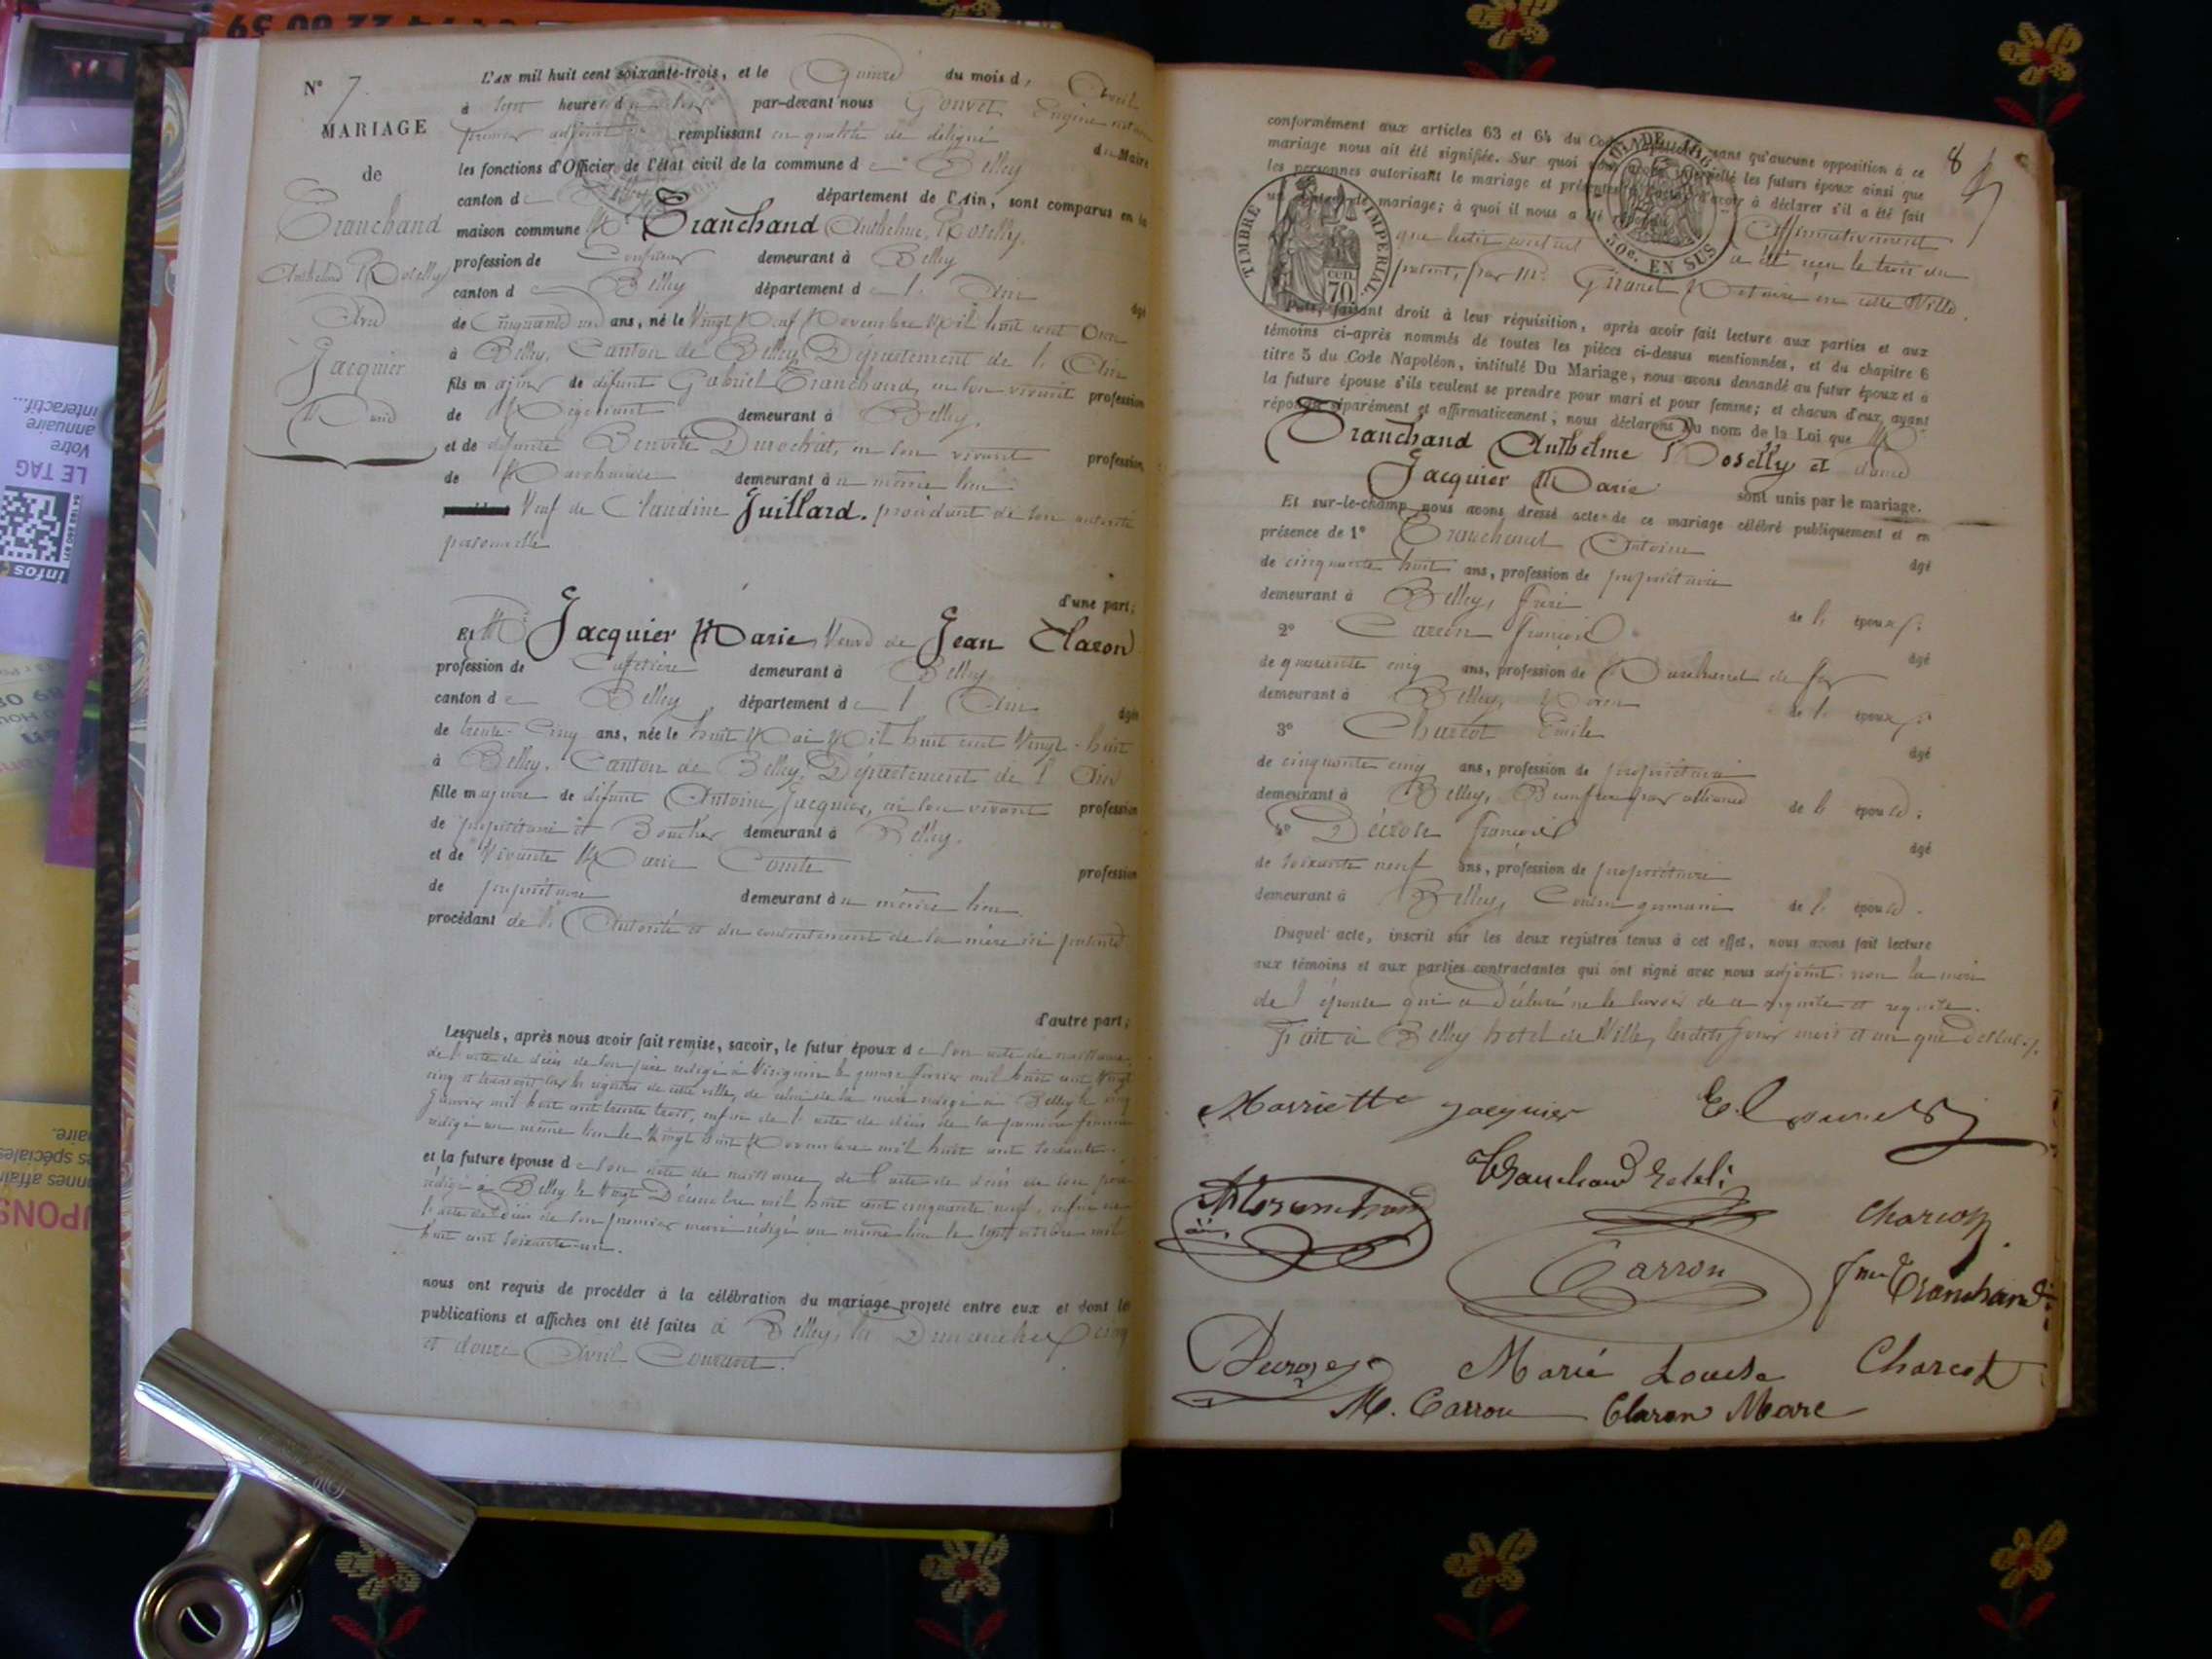 N° 7.
MARIAGE
de
Tranchand
Anthelme Roselly
Avec
Jacquier
Marie
L'AN mil huit cent soixante-trois, et le Quinze du mois d' Avril
à sept heures du soir par-devant nous Gouvet Eugène
premier adjoint remplissant en qualité de délégué du Maire
les fonctions d'Officier de l'état civil de la commune de Belley
canton de Belley département de l'Ain, sont comparus en la
maison commune Mr Tranchand Anthelme, Roselly,
profession de Confiseur demeurant à Belley
canton de Belley département de l' Ain âgé
de Cinquante un ans, né le Vingt Neuf Novembre Mil huit cent Onze
à Belley, Canton de Belley, Département de l' Ain
fils majeur de défunt Gabriel Tranchand, en son vivant profession
de Négociant demeurant à Belley.
et de défunte Benoîte Durochat, en son vivant profession
de Marchande demeurant à u même lieu
Veuf de Claudine Juillard. procédant de son autorité
personnelle
d'une part;
Et Me Jacquier Marie, Veuve de Jean Claron
profession de Cafetière demeurant à Belley
canton de Belley département de l' Ain âgée
de trente-Cinq ans, née le huit Mai Mil huit cent Vingt-huit
à Belley. Canton de Belley, Département de l' Ain
fille majeure de défunt Antoine Jacquier, en son vivant profession
de propriétaire et Boucher demeurant à Belley.
et de Vivante Marie Comte profession
de propriétaire demeurant à u même lieu.
procédant de l' Autorité et du consentement de la mère ici présente
d'autre part;
Lesquels, après nous avoir fait remise, savoir, le futur époux de son acte de naissance
de l'acte de décès de son père rédigé à Virignin le quinze février mil huit cent Vingt
cinq et transcrit sur le registre de cette ville, de celui de la mère rédigé à Belley le cinq
Janvier mil huit cent trente trois, enfin de l'acte de décès de sa première femme
rédigé au même lieu le Vingt huit Novembre mil huit cent soixante.
et la future épouse de son acte de naissance, de l'acte de décès de son père
rédigé à Belley le Vingt Décembre mil huit cent cinquante neuf, enfin de
l'acte de décès de son premier mari rédigé au même lieu le sept octobre mil
huit cent soixante-un.
nous ont requis de procéder à la célébration du mariage projeté entre eux et dont les
publications et affiches ont été faites à Belley, les Dimanches cinq
et douze Avril Courant.
8
conformément aux articles 63 et 64 du Code sans qu'aucune opposition à ce
mariage nous ait été signifiée. Sur quoi nous avons interpellé les futurs époux ainsi que
les personnes autorisant le mariage et présentes d'avoir à déclarer s'il a été fait
un contrat de mariage; à quoi il nous a été répondu Affirmativement
que ledit contrat a été reçu le trois du
présent, par Me. Notaire en cette Ville.
Puis, faisant droit à leur réquisition, après avoir fait lecture aux parties et aux
témoins ci-après nommés de toutes les pièces ci-dessus mentionnées, et du chapitre 6
titre 5 du Code Napoléon, intitulé Du Mariage, nous avons demandé au futur époux et à
la future épouse s'ils veulent se prendre pour mari et pour femme; et chacun d'eux, ayant
répondu séparément et affirmativement, nous déclarons au nom de la Loi que Mr
Tranchand Anthelme Roselly et dame
Jacquier Marie sont unis par le mariage.
Et sur-le-champ nous avons dressé acte de ce mariage célébré publiquement et en
présence de 1° Tranchand Antoine âgé
de cinquante huit ans, profession de propriétaire
demeurant à Belley, frère de l' époux;
2° Carron François âgé
de quarante cinq ans, profession de Marchand de fer
demeurant à Belley, de l' époux;
3° Charcot Emile âgé
de cinquante cinq ans, profession de propriétaire
demeurant à Belley, Beaufrère par alliance de l' épouse;
4° François âgé
de soixante neuf ans, profession de propriétaire
demeurant à Belley, Cousin germain de l' épouse.
Duquel acte, inscrit sur les deux registres tenus à cet effet, nous avons fait lecture
aux témoins et aux parties contractantes qui ont signé avec nous adjoint non la mère
de l'épouse qui a déclaré ne le savoir de ce enquise et requise.
Fait à Belley hotel de Ville, lesdits jour mois et an que dessus.
Marriette Jacquier
Tranchand
Charcot
Carron
Tranchand
Marie Louise Charcot
M. Carron Claron Marc
TIMBRE IMPERIAL
70
50c. EN SUS
infos
LE TAG
Votre
annuaire
interactif...